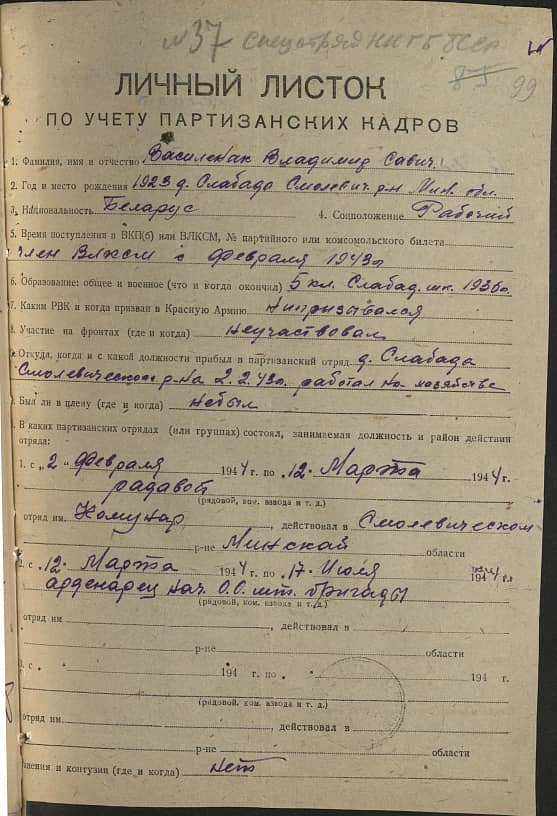 № 37 Спецотряд НКГБ БССР
85
99
ЛИЧНЫЙ ЛИСТОК
ПО УЧЕТУ ПАРТИЗАНСКИХ КАДРОВ
1. Фамилия, имя и отчество Василенак Владимир Савич.
2. Год и место рождения 1923 д. Слабада Смолевич. р-н Мин. обл.
3. Национальность Беларус 4. Соцположение Рабочий
5. Время поступления в ВКП(б) или ВЛКСМ, № партийного или комсомольского билета
член Влксм с Февраля 1943г
6. Образование: общее и военное (что и когда окончил) 5 кл. Слабад. шк. 1936г.
7. Каким РВК и когда призван в Красную Армию Нипризывался
8. Участие на фронтах (где и когда) Неучаствовал
Откуда, когда и с какой должности прибыл в партизанский отряд д. Слабада
Смолевического р-на 2.2.43г. работал на хозяйстве
Был ли в плену (где и когда) небыл
В каких партизанских отрядах (или группах) состоял, занимаемая должность и район действии
отряда:
1. с „2" Февраля 1944 г. по „12. Марта 1944 г.
радавой
(рядовой, ком. взвода и т. д.)
отряд им. Комунар, действовал в Смолевическом
р-не Минской области
2. с „12. Марта 1944 г. по „17. Июля 1944 г.
арденарец нач. О.О. шт. бригады
(рядовой, ком. взвода и т. д.)
отряд им., действовал в
р-не области
3. с „ " 194 г. по „ " 194 г.
(рядовой, ком. взвода и т. д.)
отряд им., действовал в
р-не области
нения и контузии (где и когда) нет